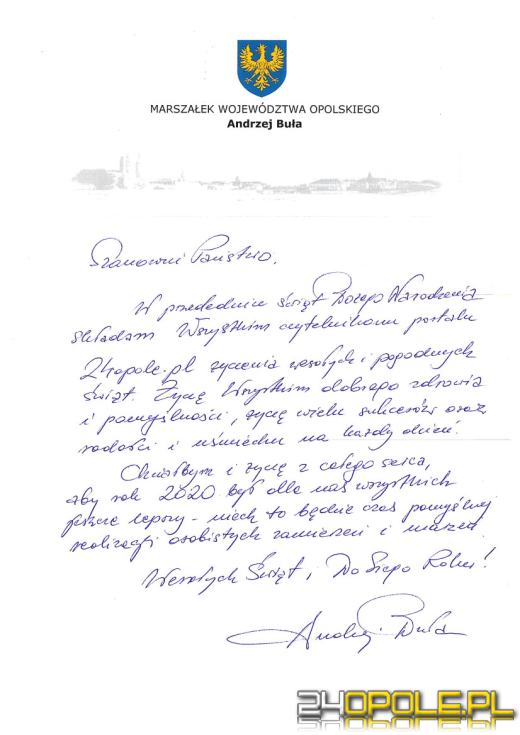 MARSZAŁEK WOJEWÓDZTWA OPOLSKIEGO
Andrzej Buła
Szanowni Państwo,
W przededniu Świąt Bożego Narodzenia
składam Wszystkim czytelnikom portalu
24opole.pl życzenia wesołych i pogodnych
Świąt. Życzę Wszystkim dobrego zdrowia
i pomyślności, życzę wielu sukcesów oraz
radości i uśmiechu na każdy dzień.
Chciałbym i życzę z całego serca,
aby rok 2020 był dla nas wszystkich
jeszcze lepszy - niech to będzie czas pomyślnej
realizacji osobistych zamierzeń i marzeń.
Wesołych Świąt, i Do Siego Roku!
Andrzej Buła
24OPOLE.PL